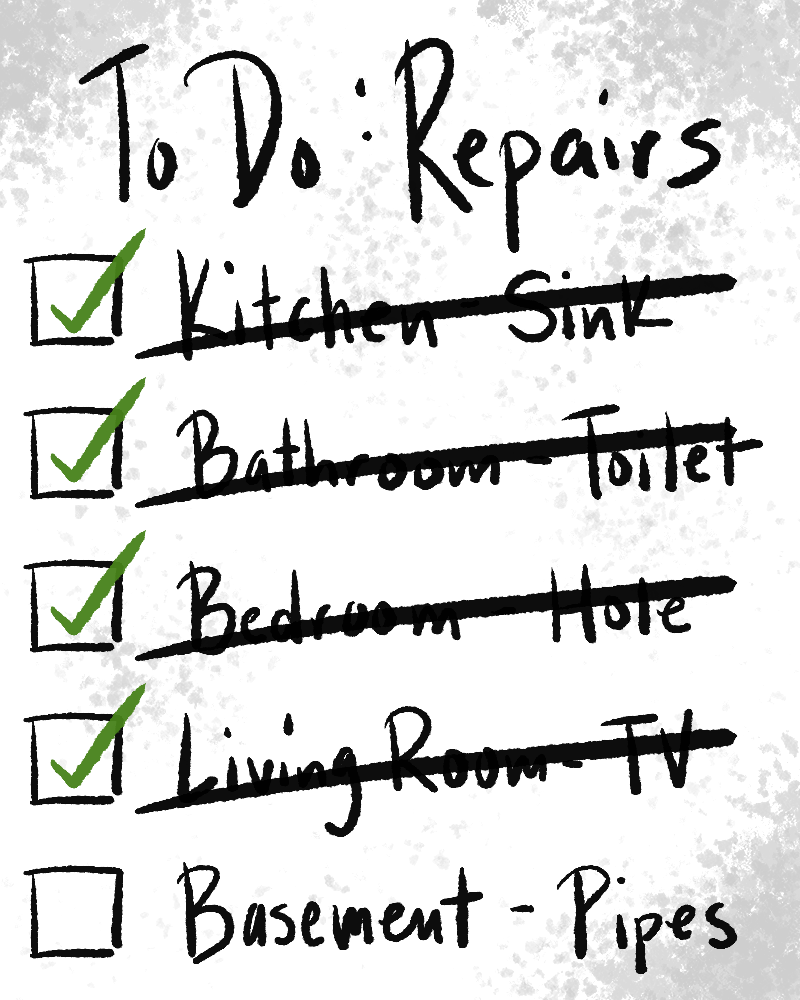 To Do: Repairs
Kitchen - Sink
Bathroom - Toilet
Bedroom - Hole
Living Room - TV
Basement - Pipes